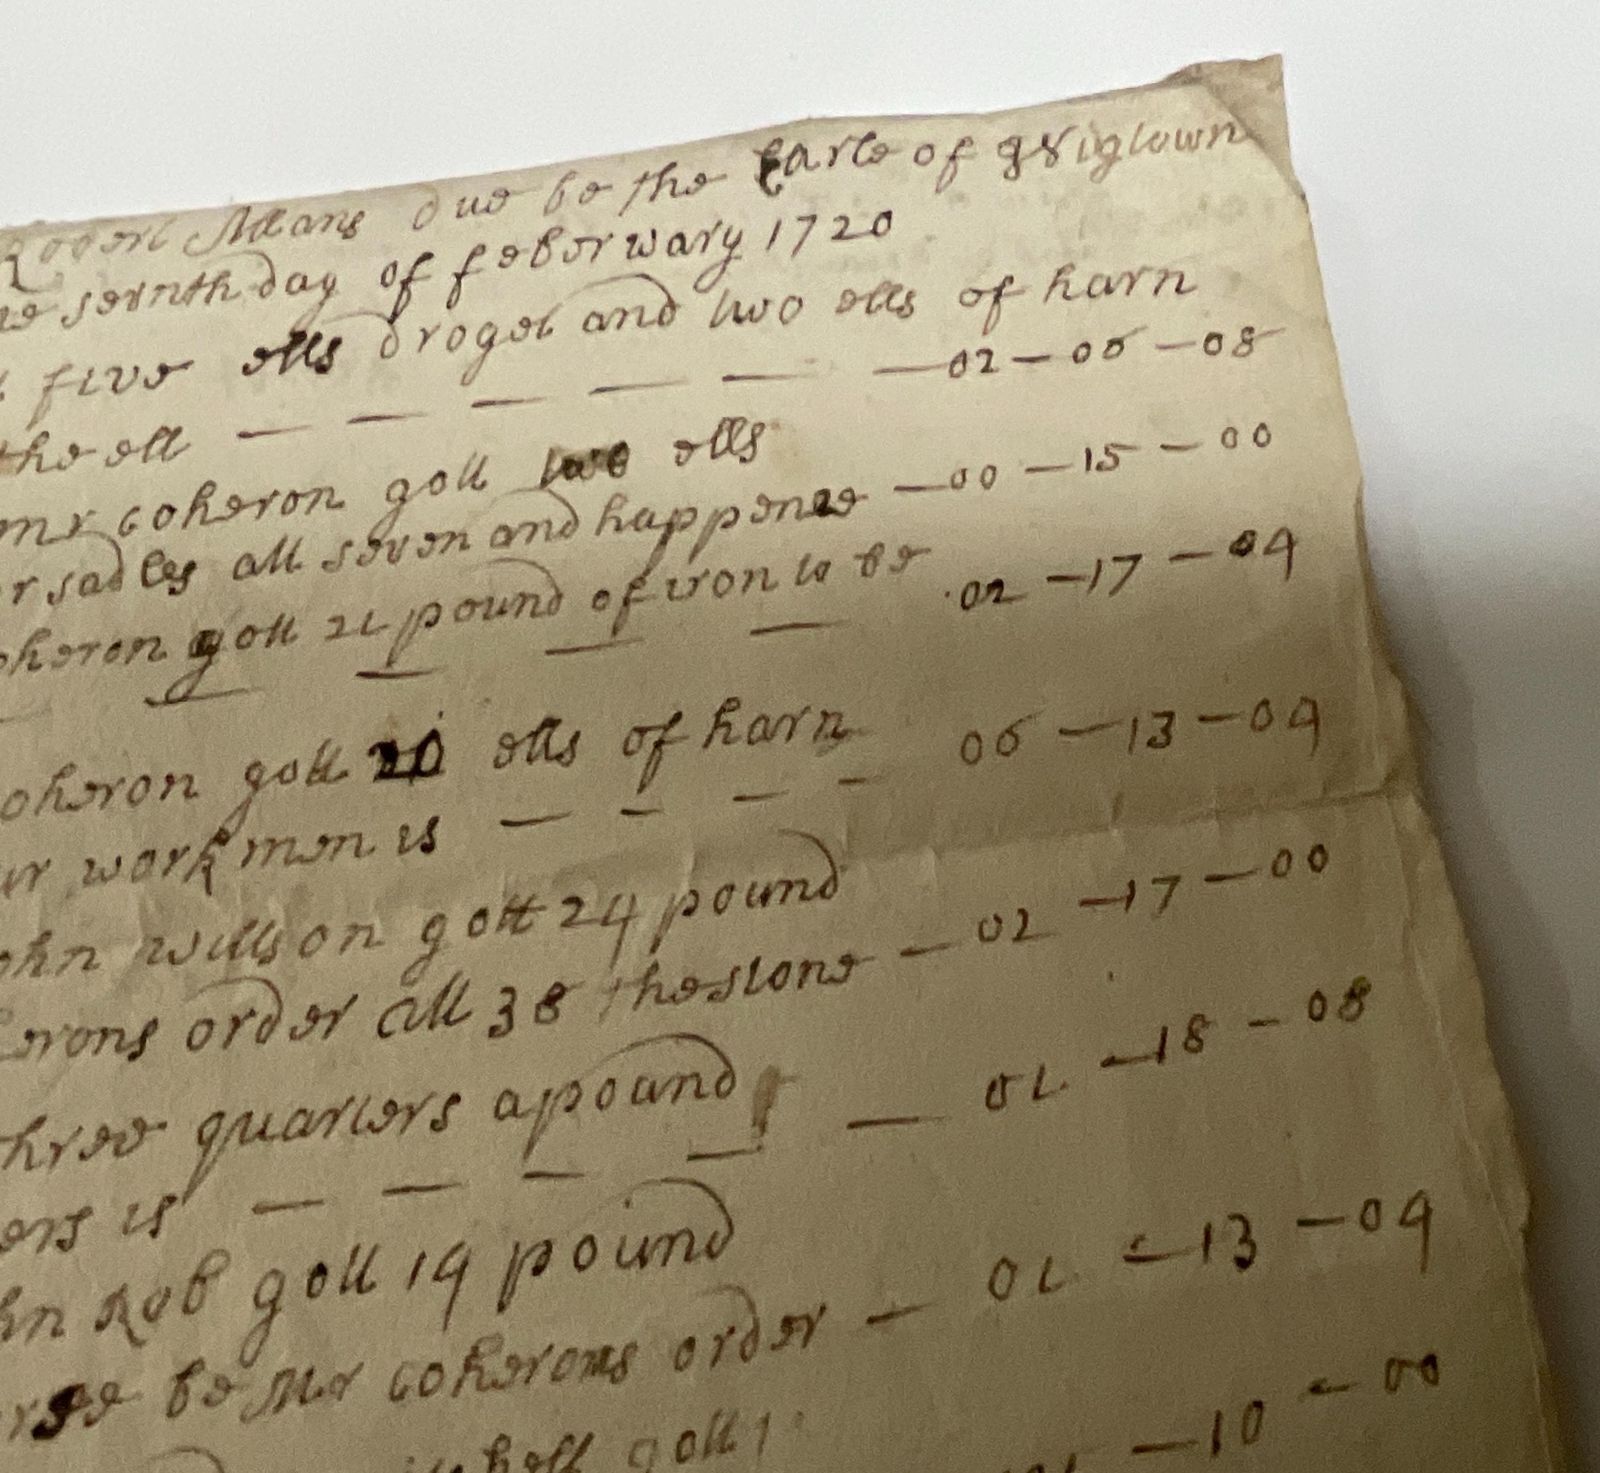 Robert Allans due be the Earle of
sernth day of feberwary 1720
five ells droget and two ells of harn
the ell — — — — — — 02 — 06 — 08
mr coheron gott two ells
sadles all seven and happenee — 00 — 15 — 00
oheron gott 21 pound of iron to be 02 — 17 — 04
oheron gott 20 ells of harn 06 — 13 — 04
ur workmen is — — — —
ohn willson gott 24 pound
erons order att 38 the stone — 02 — 17 — 00
hree quarters a pound
ers is — — — — — 01 — 18 — 08
hn Rob gott 14 pound
be Mr coherons order — 01 — 13 — 04
gott
— 10 — 00